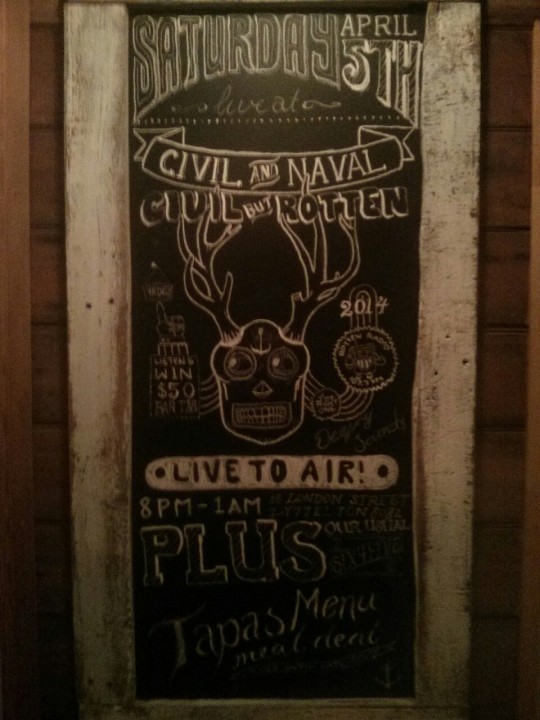 SATURDAY APRIL 5TH
live at
CIVIL AND NAVAL
CIVIL BUT ROTTEN
2014
LISTEN &
WIN
$50
BAR TAB
LIVE TO AIR!
8PM-1AM
16 LONDON STREET
LYTTELTON
PLUS
OUR USUAL
Tapas Menu
meal deal